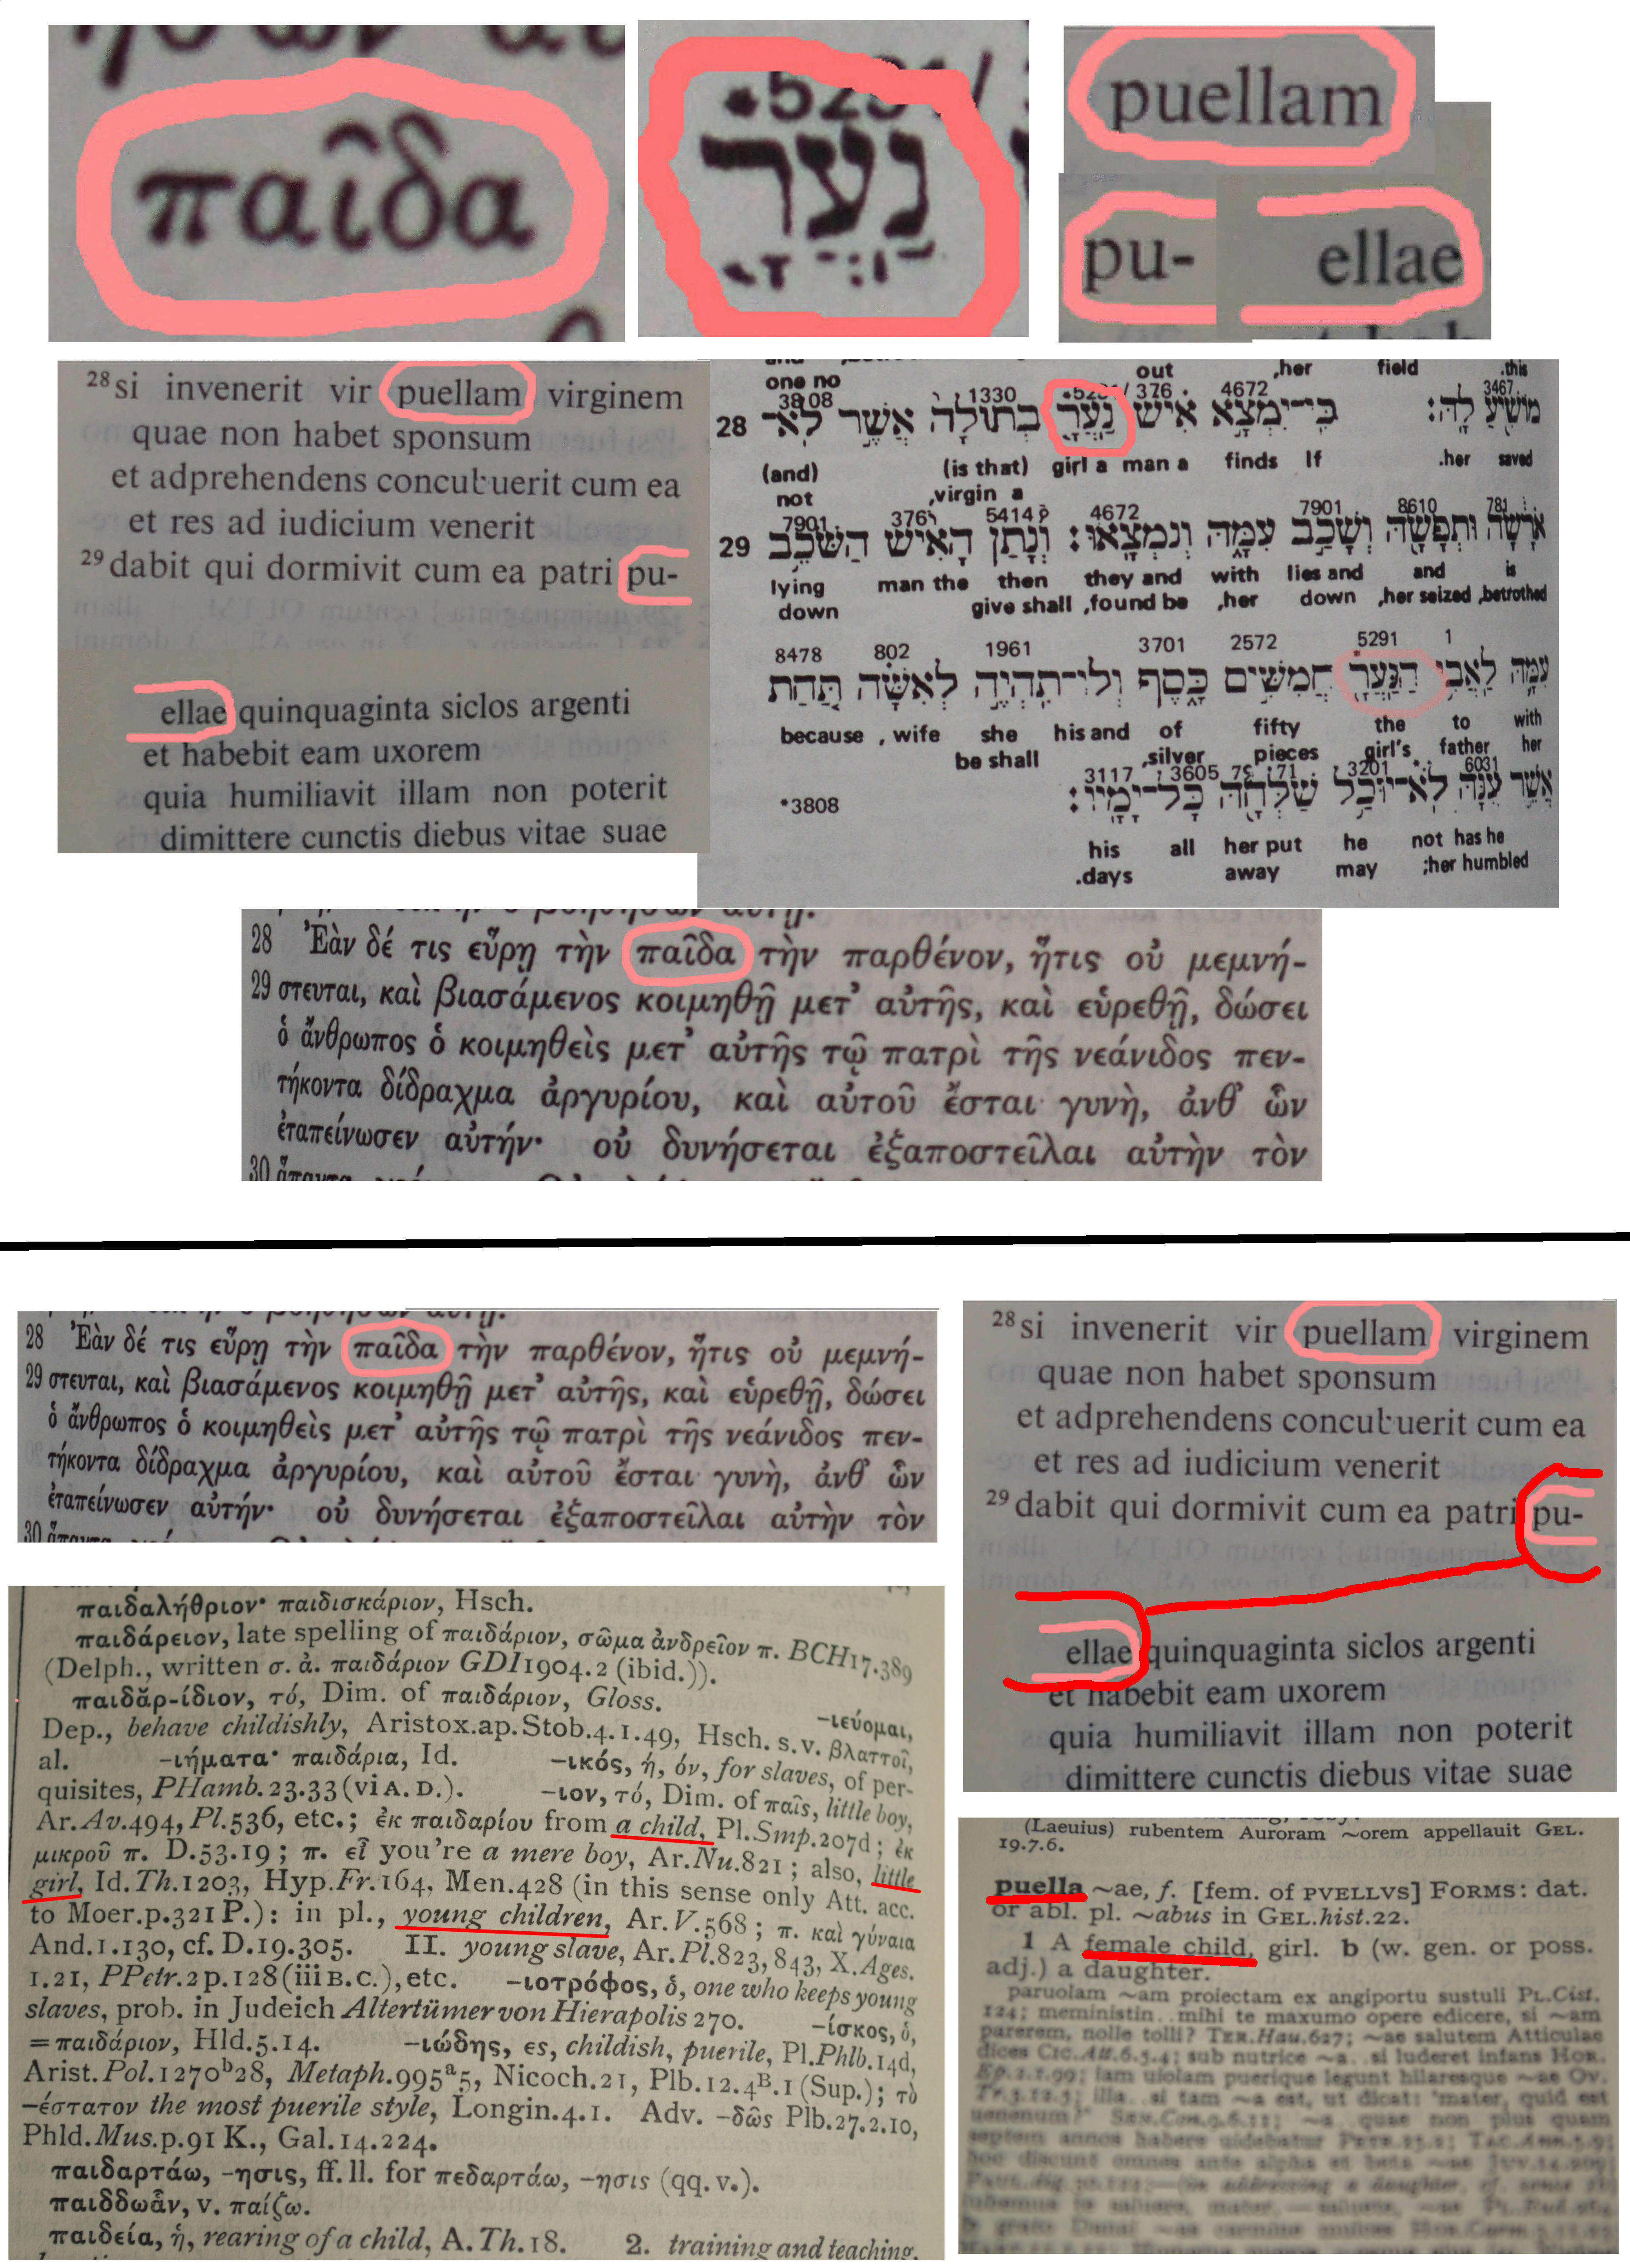 παῖδα
*5291/
נַעֲרָ
puellam
pu-
ellae
28 si invenerit vir puellam virginem
quae non habet sponsum
et adprehendens concubuerit cum ea
et res ad iudicium venerit
29 dabit qui dormivit cum ea patri pu-
ellae quinquaginta siclos argenti
et habebit eam uxorem
quia humiliavit illam non poterit
dimittere cunctis diebus vitae suae
one no out ,her field .this
3808 1330 *5291/ 376 4672 3467
28 מוֹשִׁיעַ לָהּ: כִּי־יִמְצָא אִישׁ נַעֲרָ בְתוּלָה אֲשֶׁר לֹא־
(and) (is that) girl a man a finds If .her saved
not ,virgin a
7901 376 5414 4672 7901 8610 781
29 אֹרָשָׂה וּתְפָשָׂהּ וְשָׁכַב עִמָּהּ וְנִמְצָאוּ: וְנָתַן הָאִישׁ הַשֹּׁכֵב
lying man the then they and with lies and and is
down give shall ,found be ,her down ,her seized ,betrothed
8478 802 1961 3701 2572 5291 1
עִמָּהּ לַאֲבִי הַנַּעֲרָ חֲמִשִּׁים כָּסֶף וְלוֹ־תִהְיֶה לְאִשָּׁה תַּחַת
because , wife she his and of fifty the to with
be shall ,silver pieces girl's father her
3117 3605 7971 3201 6031
*3808 אֲשֶׁר עִנָּהּ לֹא־יוּכַל שַׁלְּחָהּ כָּל־יָמָיו:
his all her put he not has he
.days away may ;her humbled
28 Ἐὰν δέ τις εὕρῃ τὴν παῖδα τὴν παρθένον, ἥτις οὐ μεμνή-
29 στευται, καὶ βιασάμενος κοιμηθῇ μετ᾽ αὐτῆς, καὶ εὑρεθῇ, δώσει
ὁ ἄνθρωπος ὁ κοιμηθεὶς μετ᾽ αὐτῆς τῷ πατρὶ τῆς νεάνιδος πεν-
τήκοντα δίδραχμα ἀργυρίου, καὶ αὐτοῦ ἔσται γυνὴ, ἀνθ᾽ ὧν
ἐταπείνωσεν αὐτήν· οὐ δυνήσεται ἐξαποστεῖλαι αὐτὴν τὸν
30
28 Ἐὰν δέ τις εὕρῃ τὴν παῖδα τὴν παρθένον, ἥτις οὐ μεμνή-
29 στευται, καὶ βιασάμενος κοιμηθῇ μετ᾽ αὐτῆς, καὶ εὑρεθῇ, δώσει
ὁ ἄνθρωπος ὁ κοιμηθεὶς μετ᾽ αὐτῆς τῷ πατρὶ τῆς νεάνιδος πεν-
τήκοντα δίδραχμα ἀργυρίου, καὶ αὐτοῦ ἔσται γυνὴ, ἀνθ᾽ ὧν
ἐταπείνωσεν αὐτήν· οὐ δυνήσεται ἐξαποστεῖλαι αὐτὴν τὸν
30
28 si invenerit vir puellam virginem
quae non habet sponsum
et adprehendens concubuerit cum ea
et res ad iudicium venerit
29 dabit qui dormivit cum ea patri pu-
ellae quinquaginta siclos argenti
et habebit eam uxorem
quia humiliavit illam non poterit
dimittere cunctis diebus vitae suae
παιδαλήθριον· παιδισκάριον, Hsch.
παιδάρειον, late spelling of παιδάριον, σῶμα ἀνδρεῖον π. BCH17.389
(Delph., written σ. ἀ. παιδάριον GDI1904.2 (ibid.)).
παιδᾰρ-ίδιον, τό, Dim. of παιδάριον, Gloss. -ιεύομαι,
Dep., behave childishly, Aristox.ap.Stob.4.1.49, Hsch. s.v. βλαττοῖ,
al. -ιήματα· παιδάρια, Id. -ικός, ή, όν, for slaves, of per-
quisites, PHamb.23.33 (vi A. D.). -ιον, τό, Dim. of παῖς, little boy,
Ar.Av.494, Pl.536, etc.; ἐκ παιδαρίου from a child, Pl.Smp.207d; ἐκ
μικροῦ π. D.53.19; π. εἶ you're a mere boy, Ar.Nu.821; also, little
girl, Id.Th.1203, Hyp.Fr.164, Men.428 (in this sense only Att. acc.
to Moer.p.321 P.): in pl., young children, Ar.V.568; π. καὶ γύναια
And.1.130, cf. D.19.305. II. young slave, Ar.Pl.823, 843, X.Ages.
1.21, PPetr.2p.128 (iii B.C.), etc. -ιοτρόφος, ὁ, one who keeps young
slaves, prob. in Judeich Altertümer von Hierapolis 270. -ίσκος, ὁ,
=παιδάριον, Hld.5.14. -ιώδης, ες, childish, puerile, Pl.Phlb.14d,
Arist.Pol.1270b28, Metaph.995a5, Nicoch.21, Plb.12.4B.1 (Sup.); τὸ
-έστατον the most puerile style, Longin.4.1. Adv. -δῶς Plb.27.2.10,
Phld.Mus.p.91 K., Gal.14.224.
παιδαρτάω, -ησις, ff. ll. for πεδαρτάω, -ησις (qq. v.).
παιδδωἆν, v. παίζω.
παιδεία, ἡ, rearing of a child, A.Th.18. 2. training and teaching,
(Laeuius) rubentem Auroram ~orem appellauit GEL.
19.7.6.
puella ~ae, f. [fem. of PVELLVS] FORMS: dat.
or abl. pl. ~abus in GEL.hist.22.
1 A female child, girl. b (w. gen. or poss.
adj.) a daughter.
paruolam ~am proiectam ex angiportu sustuli PL.Cist.
124; meministin.. mihi te maxumo opere edicere, si ~am
parerem, nolle tolli? TER.Hau.627; ~ae salutem Atticulae
dices CIC.Att.6.5.4; sub nutrice ~a.. si luderet infans HOR.
Ep.2.1.99; iam uiolam puerique legunt hilaresque ~ae OV.